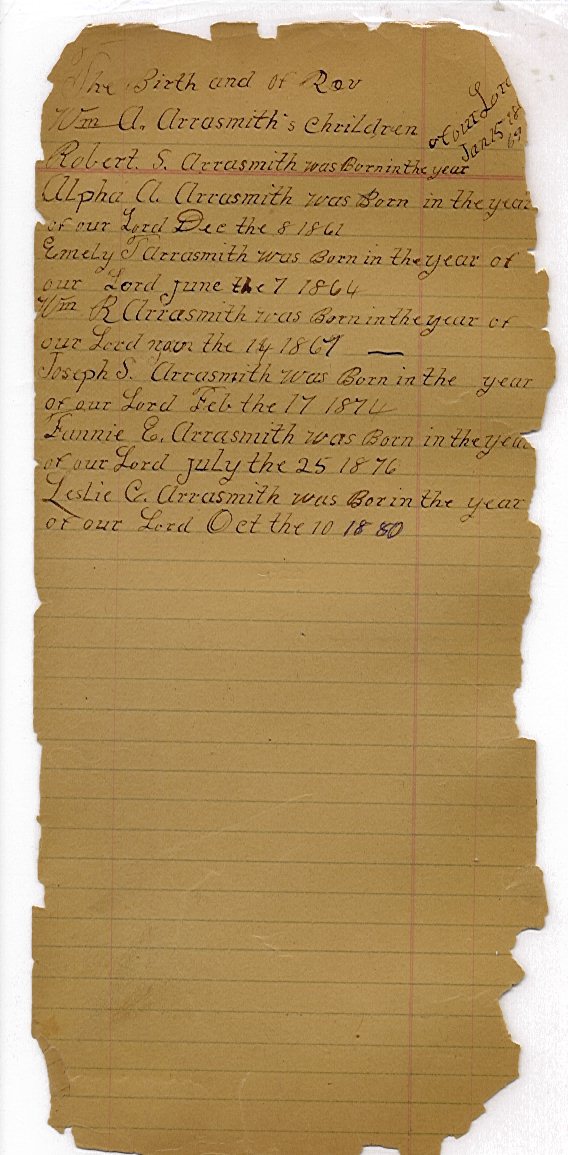 The Birth and of Rev
Wm A. Arrasmith's Chrildren
Robert. S. Arrasmith was Born in the year
of our Lord
Jan 15 18
Alpha A. Arrasmith was Born in the year
of our Lord Dec the 8 1861
Emely J Arrasmith was Born in the year of
our Lord June the 7 1864
Wm R Arrasmith was Born in the year of
our Lord novn the 14 1867 —
Joseph S. Arrasmith was Born in the year
of our Lord Feb the 17 1874
Fannie E. Arrasmith was Born in the year
of our Lord july the 25 1876
Leslie C. Arrasmith was Bor in the year
of our Lord Oct the 10 1880